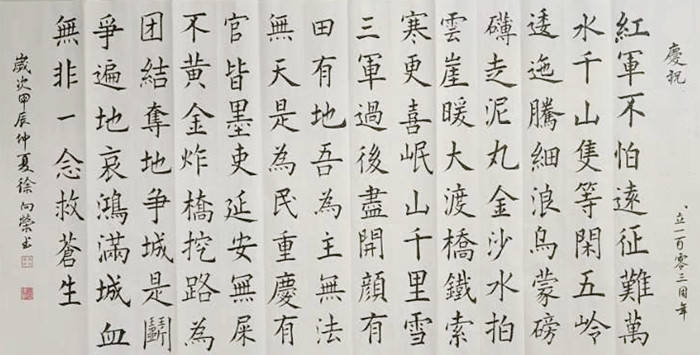 慶祝 立一百零三周年
紅軍不怕遠征難萬
水千山隻等閑五岭
逶迤騰細浪烏蒙磅
礴走泥丸金沙水拍
雲崖暖大渡橋鐵索
寒更喜岷山千里雪
三軍過後盡開顔有
田有地吾為主無法
無天是為民重慶有
官皆墨吏延安無屎
不黄金炸橋挖路為
团結奪地争城是鬭
爭遍地哀鴻滿城血
無非一念救蒼生
歲次甲辰仲夏徐向榮书